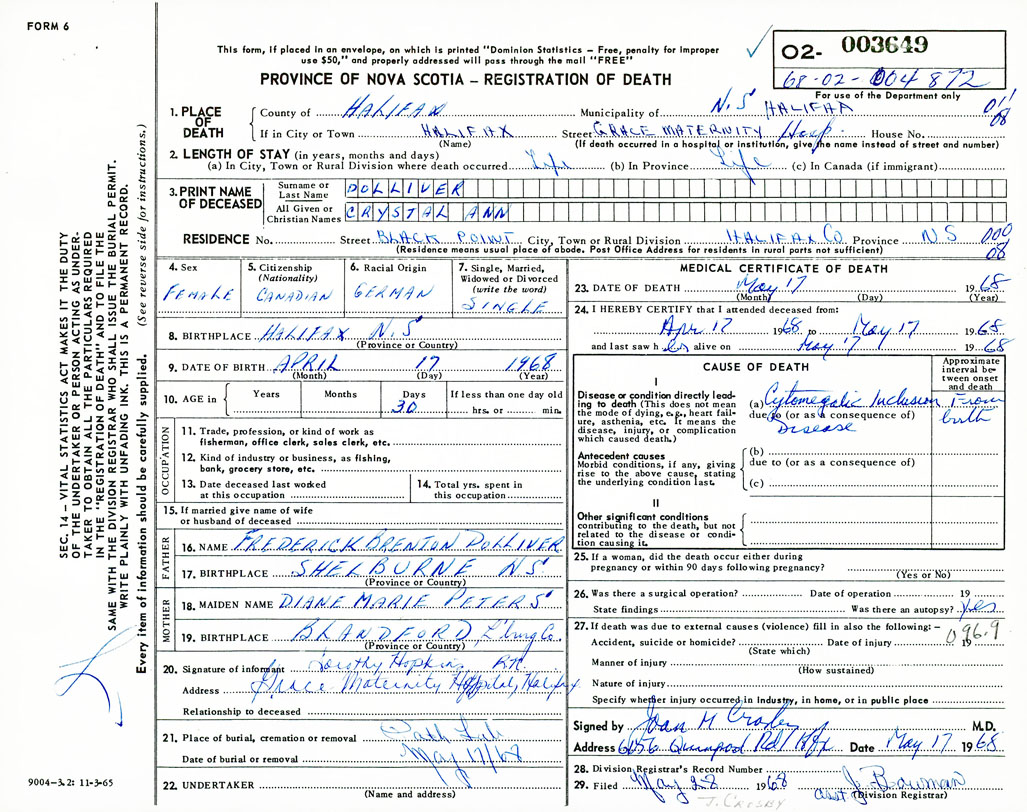 FORM 6
This form, if placed in an envelope, on which is printed "Dominion Statistics – Free, penalty for improper
use $50," and properly addressed will pass through the mail "FREE"
PROVINCE OF NOVA SCOTIA – REGISTRATION OF DEATH
O2- 003649
68-02-004872
For use of the Department only
1. PLACE OF DEATH
County of HALIFAX Municipality of N.S HALIFAX 011
If in City or Town HALIFAX Street GRACE MATERNITY Hosp. House No. 08
(Name) (If death occurred in a hospital or institution, give the name instead of street and number)
2. LENGTH OF STAY (in years, months and days)
(a) In City, Town or Rural Division where death occurred Life (b) In Province Life (c) In Canada (if immigrant)
3. PRINT NAME OF DECEASED
Surname or Last Name DOLLIVER
All Given or Christian Names CRYSTAL ANN
RESIDENCE No. Street BLACK POINT City, Town or Rural Division HALIFAX CO Province NS 000
(Residence means usual place of abode. Post Office Address for residents in rural parts not sufficient) 08
4. Sex
FEMALE
5. Citizenship
(Nationality)
CANADIAN
6. Racial Origin
GERMAN
7. Single, Married,
Widowed or Divorced
(write the word)
SINGLE
8. BIRTHPLACE HALIFAX N.S
(Province or Country)
9. DATE OF BIRTH APRIL 17 1968
(Month) (Day) (Year)
10. AGE in Years Months Days If less than one day old
30 hrs. or min.
OCCUPATION
11. Trade, profession, or kind of work as
fisherman, office clerk, sales clerk, etc.
12. Kind of industry or business, as fishing,
bank, grocery store, etc.
13. Date deceased last worked
at this occupation
14. Total yrs. spent in
this occupation
15. If married give name of wife
or husband of deceased
FATHER
16. NAME FREDERICK BRENTON DOLLIVER
17. BIRTHPLACE SHELBURNE NS
(Province or Country)
MOTHER
18. MAIDEN NAME DIANE MARIE PETERS
19. BIRTHPLACE BLANDFORD, L'burg Co.
(Province or Country)
20. Signature of informant Dorothy Hopkins
Address Grace Maternity Hospital, Halifax
Relationship to deceased
21. Place of burial, cremation or removal Path Lab
Date of burial or removal May 17/68
22. UNDERTAKER
(Name and address)
MEDICAL CERTIFICATE OF DEATH
23. DATE OF DEATH May 17 1968
(Month) (Day) (Year)
24. I HEREBY CERTIFY that I attended deceased from:
Apr 17 1968 to May 17 1968
and last saw her alive on May 17 1968
CAUSE OF DEATH
Approximate
interval be-
tween onset
and death
I
Disease or condition directly lead-
ing to death (This does not mean
the mode of dying, e.g., heart fail-
ure, asthenia, etc. It means the
disease, injury, or complication
which caused death.)
(a) Cytomegalic Inclusion From
due to (or as a consequence of) birth
Disease
Antecedent causes
Morbid conditions, if any, giving
rise to the above cause, stating
the underlying condition last.
(b)
due to (or as a consequence of)
(c)
II
Other significant conditions
contributing to the death, but not
related to the disease or condi-
tion causing it.
25. If a woman, did the death occur either during
pregnancy or within 90 days following pregnancy?
(Yes or No)
26. Was there a surgical operation? Date of operation 19
State findings Was there an autopsy? Yes
27. If death was due to external causes (violence) fill in also the following: –
096.9
Accident, suicide or homicide? Date of injury 19
(State which)
Manner of injury
(How sustained)
Nature of injury
Specify whether injury occurred in industry, in home, or in public place
Signed by Joan M Crosby M.D.
Address 6156 Quinpool Rd/Hfx Date May 17 1968
28. Division Registrar's Record Number
29. Filed May 28 1968 asst J. Bowman
(Division Registrar)
J. CROSBY
9004-3.2: 11-3-65
SEC. 14 – VITAL STATISTICS ACT MAKES IT THE DUTY
OF THE UNDERTAKER OR PERSON ACTING AS UNDER-
TAKER TO OBTAIN ALL THE PARTICULARS REQUIRED
IN THE "REGISTRATION OF DEATH" AND TO FILE THE
SAME WITH THE DIVISION REGISTRAR WHO SHALL ISSUE THE BURIAL PERMIT.
WRITE PLAINLY WITH UNFADING INK. THIS IS A PERMANENT RECORD.
Every item of information should be carefully supplied. (See reverse side for instructions.)